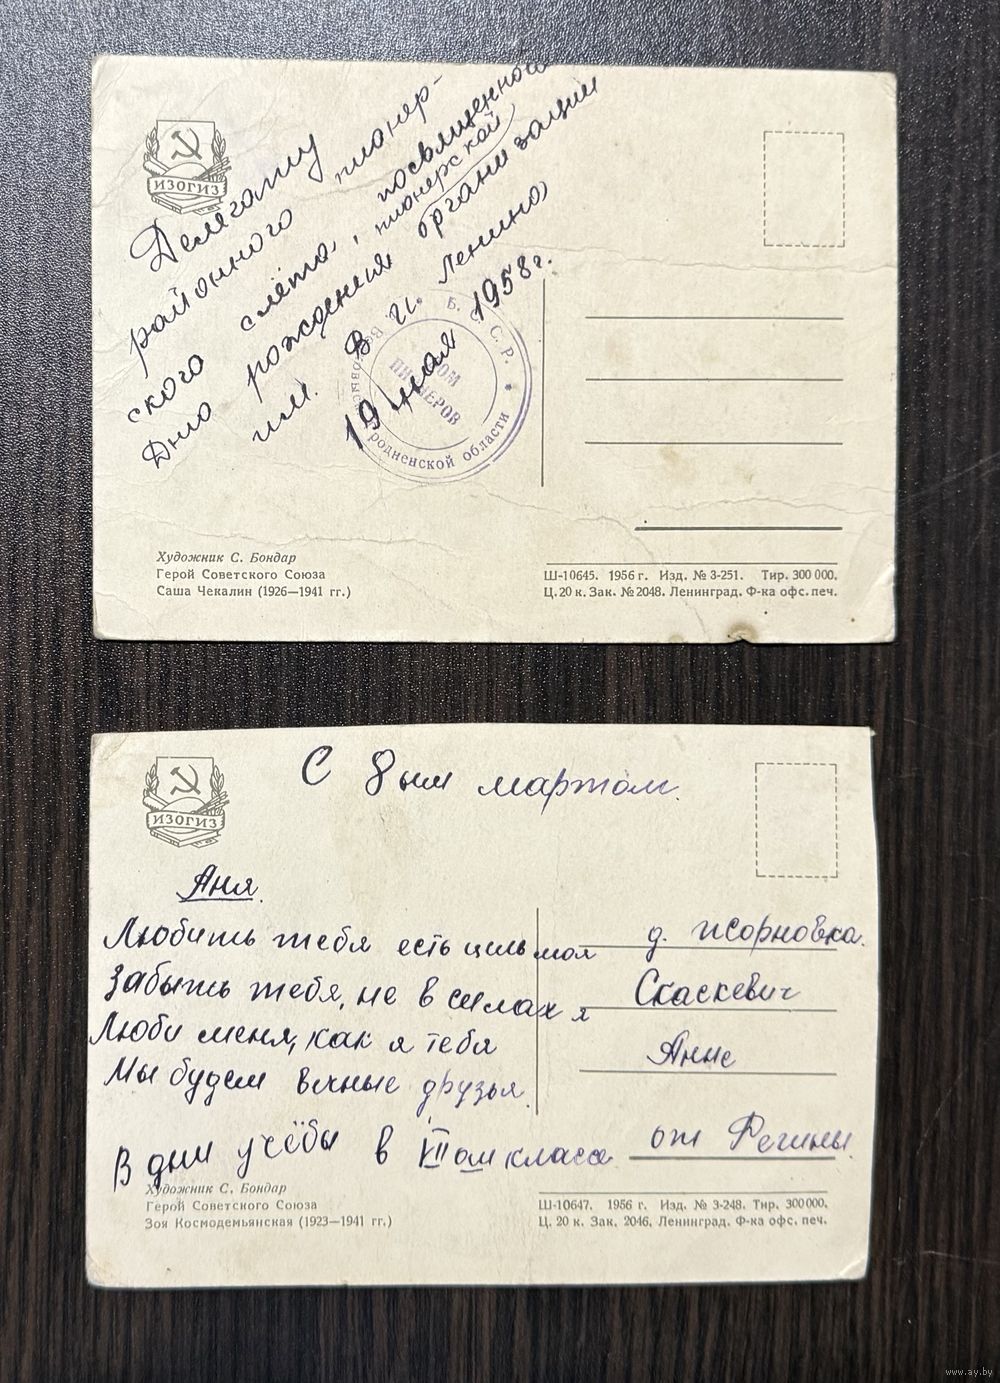 ИЗОГИЗ
Делегату
районного пионер-
ского слёта, посвященной
Дню рождения пионерской
организации
им. В. И. Ленина
19 мая 1958 г.
Б. С. С. Р.
ДОМ
ПИОНЕРОВ
Гродненской области
Художник С. Бондар
Герой Советского Союза
Саша Чекалин (1926—1941 гг.)
Ш-10645. 1956 г. Изд. № 3-251. Тир. 300 000.
Ц. 20 к. Зак. № 2048. Ленинград. Ф-ка офс. печ.
ИЗОГИЗ
С 8ым мартом.
Аня.
Любить тебя есть цель моя
Забыть тебя, не в силах я
Люби меня, как я тебя
Мы будем вечные друзья.
В дни учёбы в VII ом классе
д. Жорновка.
Скаскевич
Анне
от Регины.
Художник С. Бондар
Герой Советского Союза
Зоя Космодемьянская (1923—1941 гг.)
Ш-10647. 1956 г. Изд. № 3-248. Тир. 300 000.
Ц. 20 к. Зак. 2046. Ленинград. Ф-ка офс. печ.
www.ay.by